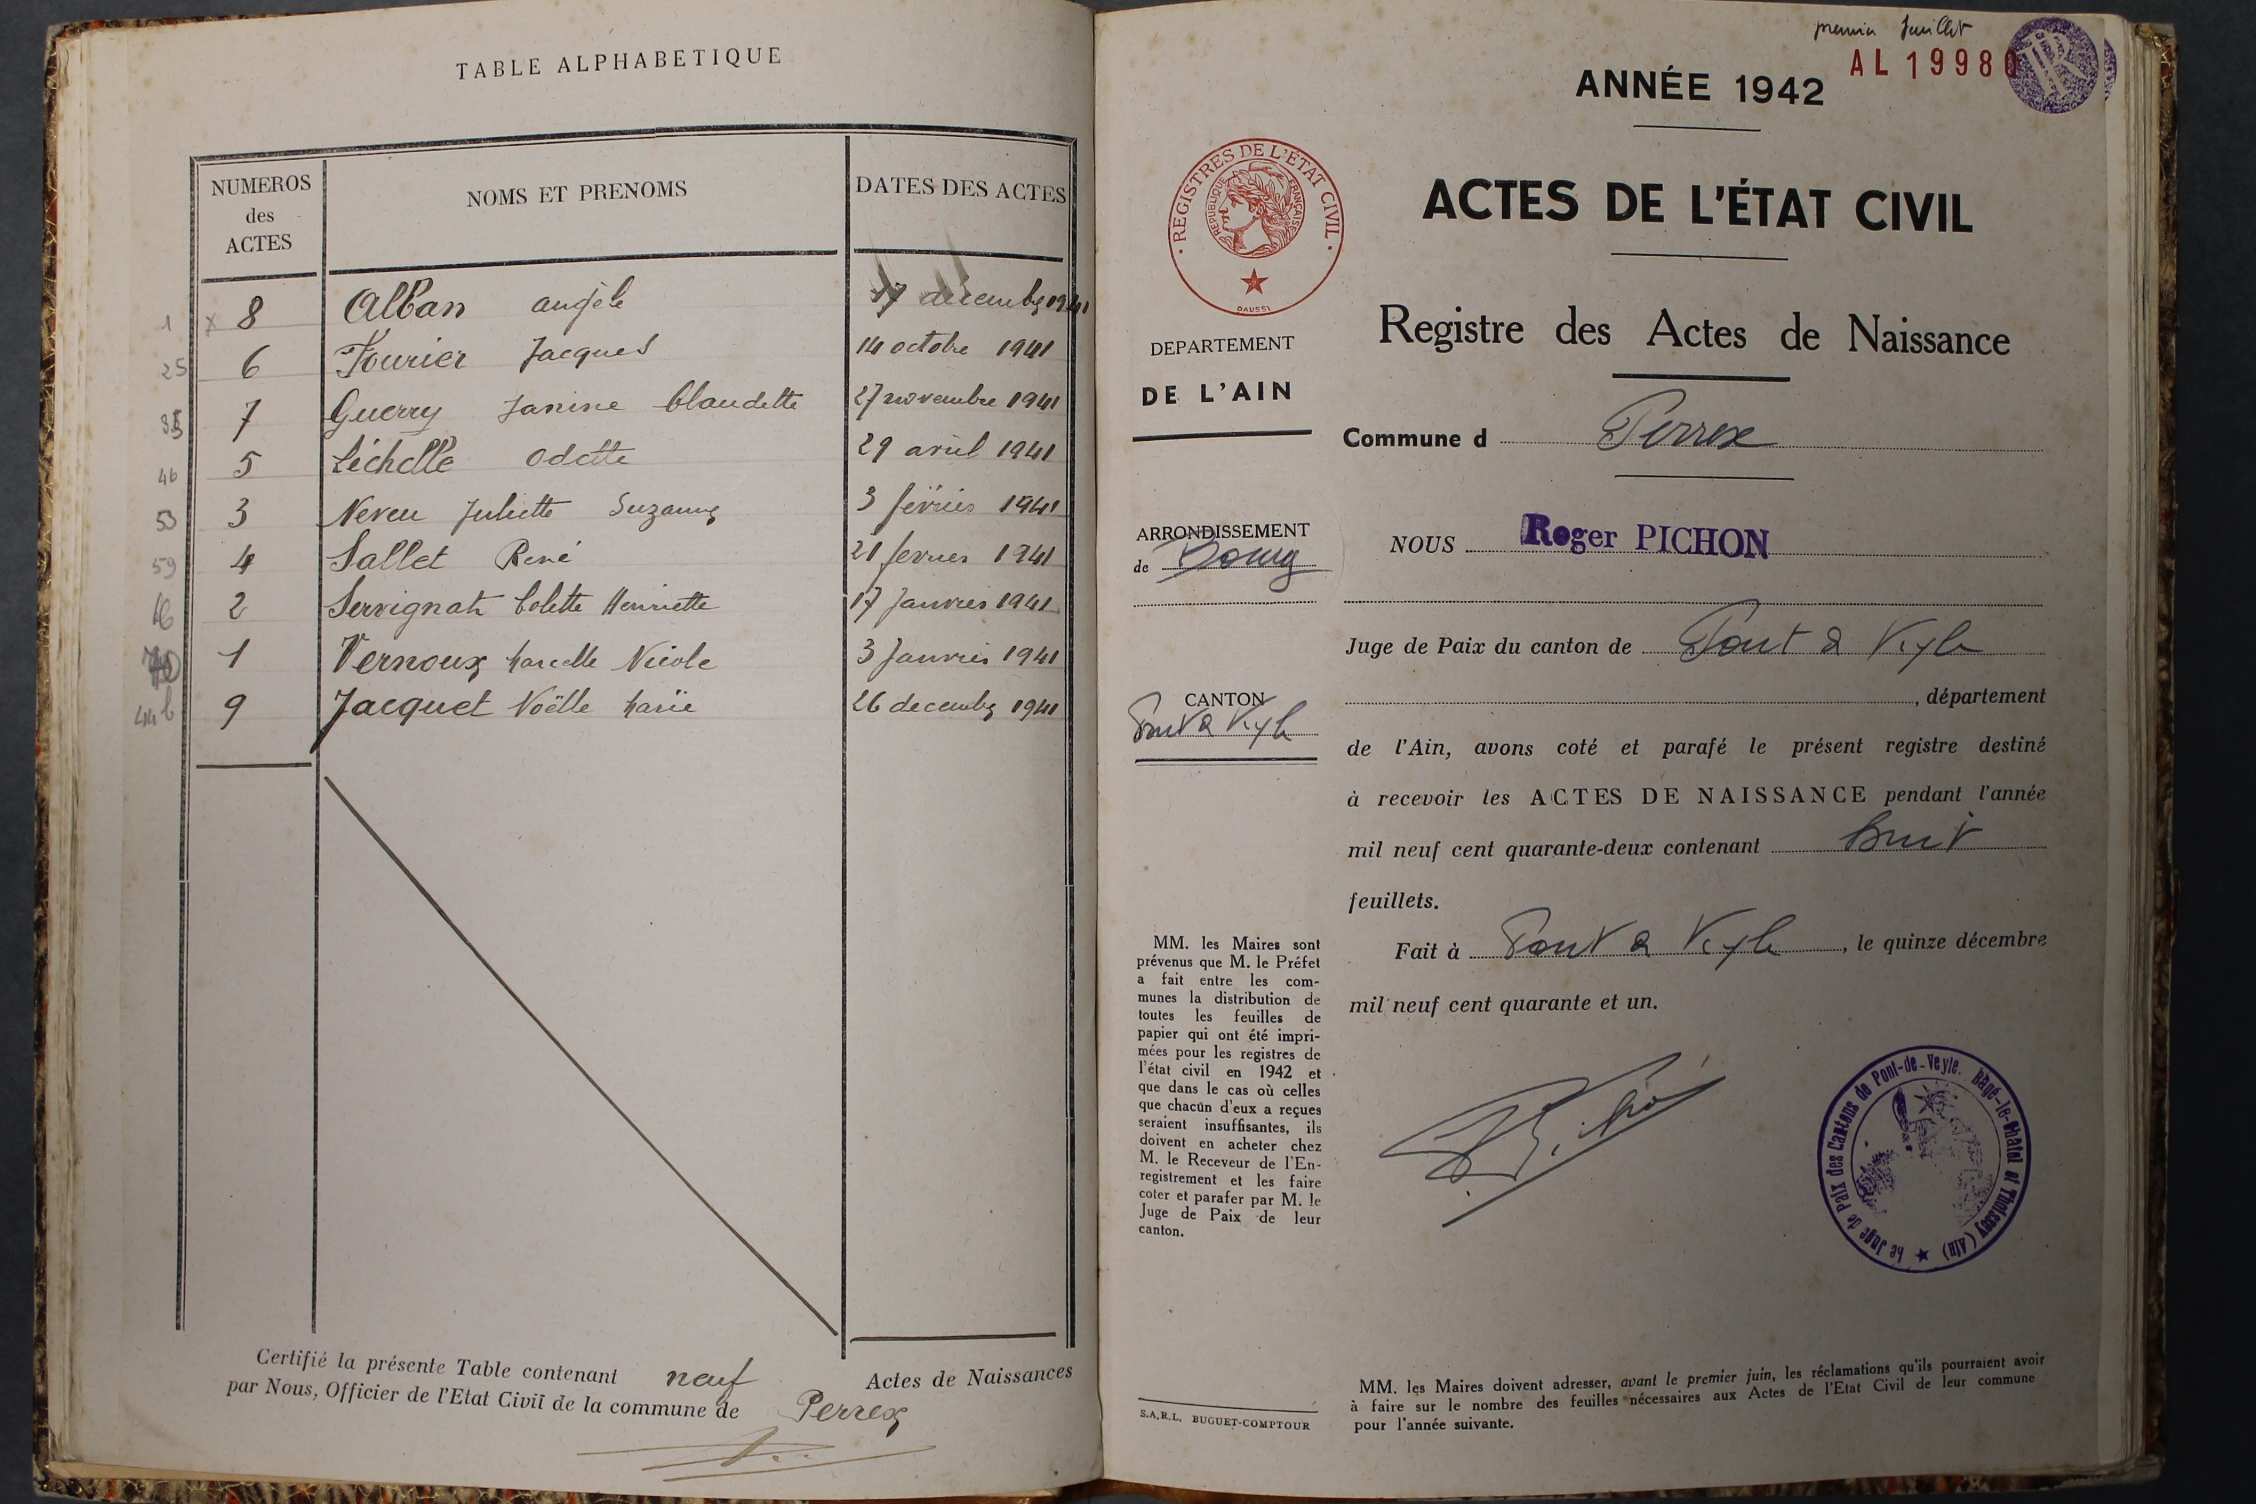 TABLE ALPHABETIQUE
NUMEROS des ACTES NOMS ET PRENOMS DATES DES ACTES
1 x 8 Alban angèle 17 décembre 1941
25 6 Fourier Jacques 14 octobre 1941
7 Guerry Janine Claudette 27 novembre 1941
46 5 Léchelle Odette 29 avril 1941
53 3 Neveu Juliette Suzanne 3 février 1941
59 4 Sallet René 21 fevrier 1941
2 Servignat Colette Henriette 17 Janvier 1941
1 Vernoux Marcelle Nicole 3 Janvier 1941
44b 9 Jacquet Noëlle Marie 26 decembre 1941
Certifié la présente Table contenant neuf Actes de Naissances
par Nous, Officier de l'Etat Civil de la commune de Perrex
premier Juillet
AL 19980
ANNÉE 1942
ACTES DE L'ÉTAT CIVIL
REGISTRES DE L'ÉTAT CIVIL
RÉPUBLIQUE FRANÇAISE
DAUSSI
Registre des Actes de Naissance
DEPARTEMENT
DE L'AIN
Commune d Perrex
ARRONDISSEMENT
de Bourg
NOUS Roger PICHON
Juge de Paix du canton de Pont de Veyle
CANTON
Pont de Veyle
, département
de l'Ain, avons coté et parafé le présent registre destiné
à recevoir les ACTES DE NAISSANCE pendant l'année
mil neuf cent quarante-deux contenant huit
feuillets.
Fait à Pont de Veyle, le quinze décembre
mil neuf cent quarante et un.
MM. les Maires sont
prévenus que M. le Préfet
a fait entre les com-
munes la distribution de
toutes les feuilles de
papier qui ont été impri-
mées pour les registres de
l'état civil en 1942 et
que dans le cas où celles
que chacun d'eux a reçues
seraient insuffisantes, ils
doivent en acheter chez
M. le Receveur de l'En-
registrement et les faire
coter et parafer par M. le
Juge de Paix de leur
canton.
Le Juge de Paix des Cantons de Pont-de-Veyle. Bâgé-le-Châtel et Thoissey (Ain)
S.A.R.L. BUGUET-COMPTOUR
MM. les Maires doivent adresser, avant le premier juin, les réclamations qu'ils pourraient avoir
à faire sur le nombre des feuilles nécessaires aux Actes de l'Etat Civil de leur commune
pour l'année suivante.